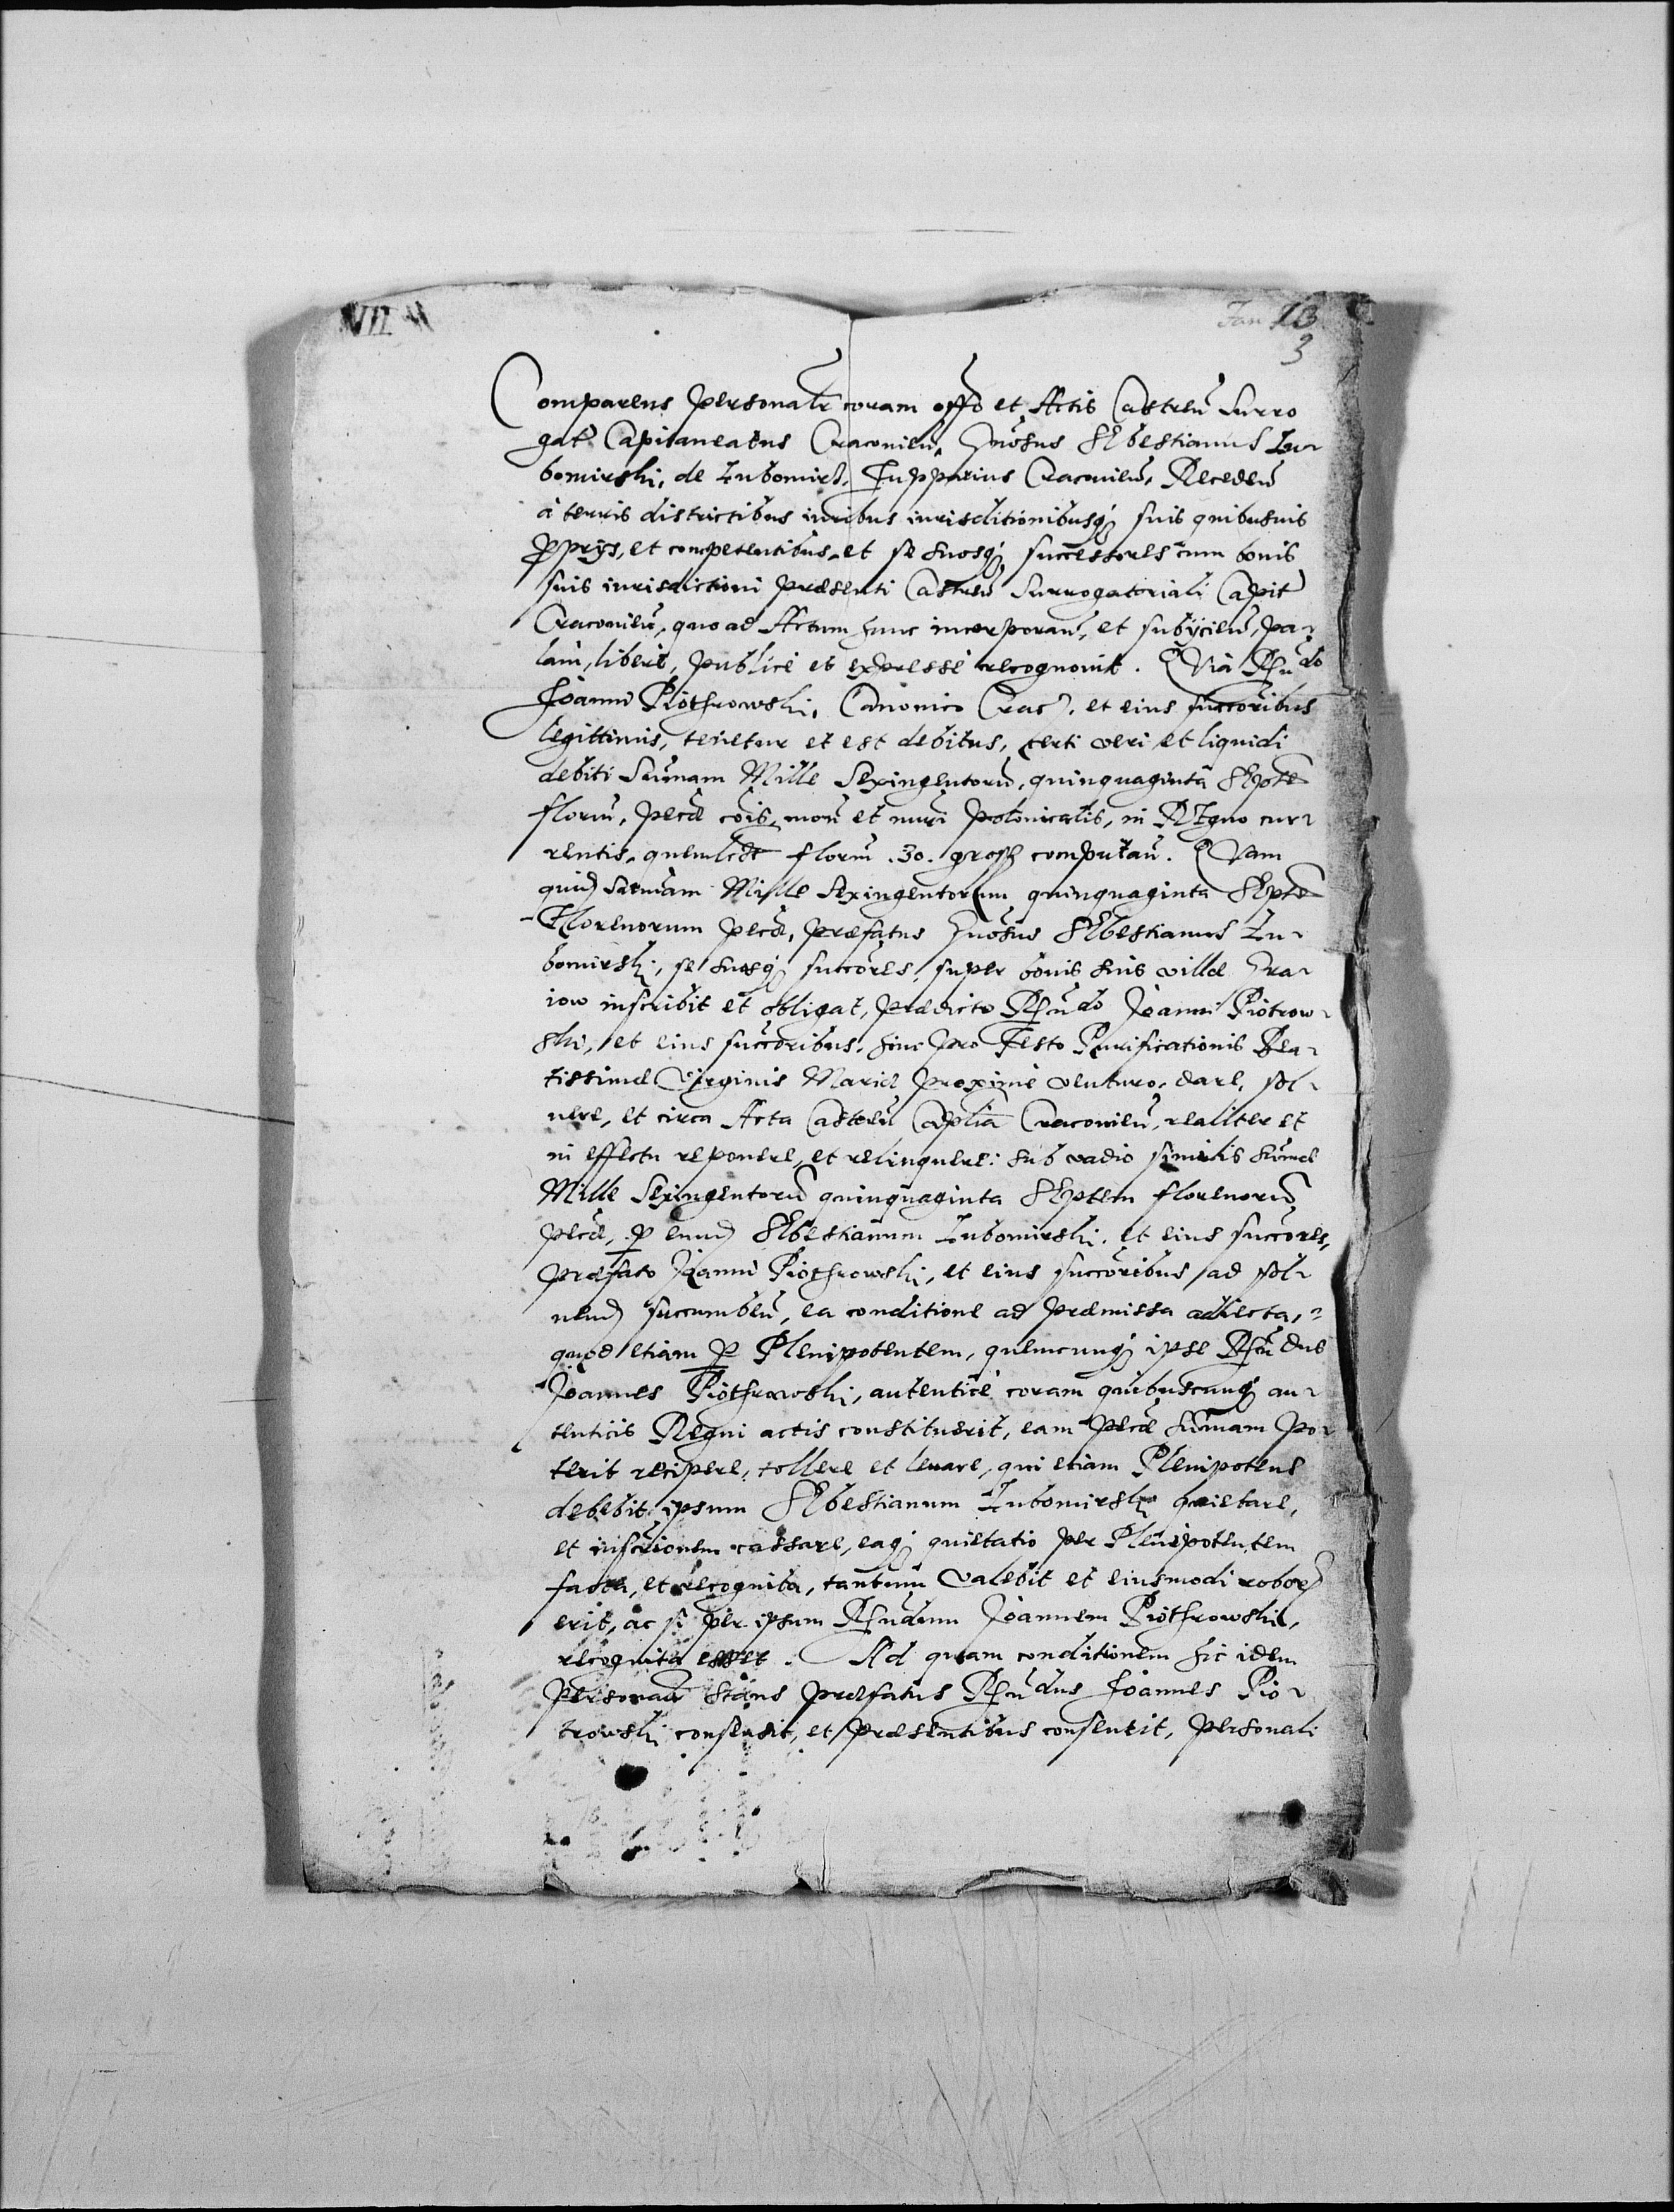 VII
Jan 13
3
Comparens personalr coram offo et Actis Castreñ Surro
gatˢ Capitaneatus Cracovieñ, Gnosus SEbestianus Lu-
bomirski, de Lubomirz, Zupparius Cracovieñ, Recedeñ
à terris districtibus iuribus iurisditionibusq; suis quibusuis
pprijs, et competentibus, et se suosq; successores cum bonis
suis iurisdictioni praesenti Castreñ Surrogatoriali Capit
Cracovieñ, quo ad Actum hunc incorporañ, et subijcieñ, pa-
lam, liberè, publicè et expressè recognovit. QVia Rndo
Joanni Piothrowski, Canonico Crac. et eius succoribus
legittimis, tenetur et est debitus, certi veri et liquidi
debiti Sum̃am Mille Sexingentorũ, quinquagintà SEptẽ
florẽn, pecũae cõis, mon et nuri polonicalis, in REgno cur-
rentis, quemlibt floreñ .30. gross computañ. QVam
quid Sum̃am Mille Sexingentorum quinquaginta SEptẽ
Florenorum pecuae, praefatus Gnosus SEbestianus Lu-
bomirski, se suosq; succores, super bonis suis villae Gra-
iow inscribit et obligat, praedicto Rndo Joanni Piotrow-
ski, et eius succoribus, hinc pro Festo Purificationis Bea-
tissimae Virginis Mariae proximè venturo, dare, sol-
uere, et circa Acta Castreñ Caplia Cracovieñ, realiter et
in effectu reponere, et relinquere: sub vadio similis sum̃ae
Mille Sexingentorũ quinquaginta SEptem florenorũ
pecuae, p eund SEbestianum Lubomirski, et eius succores,
praefato Joanni Piothrowski, et eius succoribus, ad sol-
uend succumbeñ, ea conditione ad praemissa adiecta,
quod etiam p Plenipotentem, quemcunq; ipse Rndus
Joannes Piothrowski, autenticè coram quibuscunq; au-
tenticis Regni actis constituerit, eam pecuae sum̃am po-
terit recipere, tollere et levare, qui etiam Plenipotens
debebit ipsum SEbestianum Lubomirski quietare,
et inscrionem cassare, eaq; quietatio per Plenipotentem
facta, et recognita, tantum valebit et eiusmodi robor
erit, ac si per ipsum Rndum Joannem Piothrowski,
recognita esset. Ad quam conditionem hic idem
personalr stans praefatus Rndus Joannes Pio-
trowski consensit, et praesentibus consentit, personali